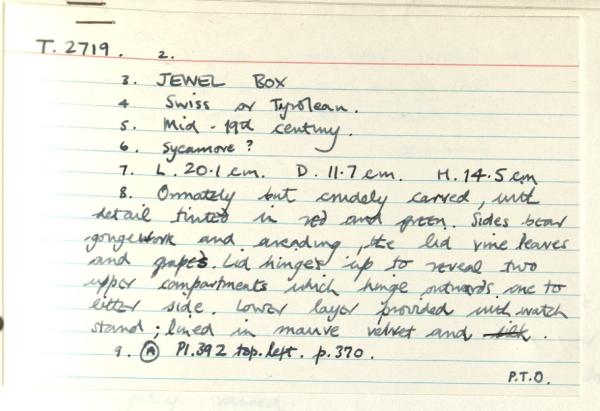 T. 2719. 2.
3. JEWEL BOX
4 Swiss or Tyrolean.
5. Mid-19th century.
6. Sycamore?
7. L. 20.1 cm. D. 11.7 cm. H. 14.5 cm
8. Ornately but crudely carved, with
detail tinted in red and green. Sides bear
gougework and arcading, the lid vine leaves
and grapes. Lid hinges up to reveal two
upper compartments which hinge outwards one to
either side. Lower layer provided with watch
stand; lined in mauve velvet and silk.
9. A Pl. 392 top. left. p. 370.
P.T.O.